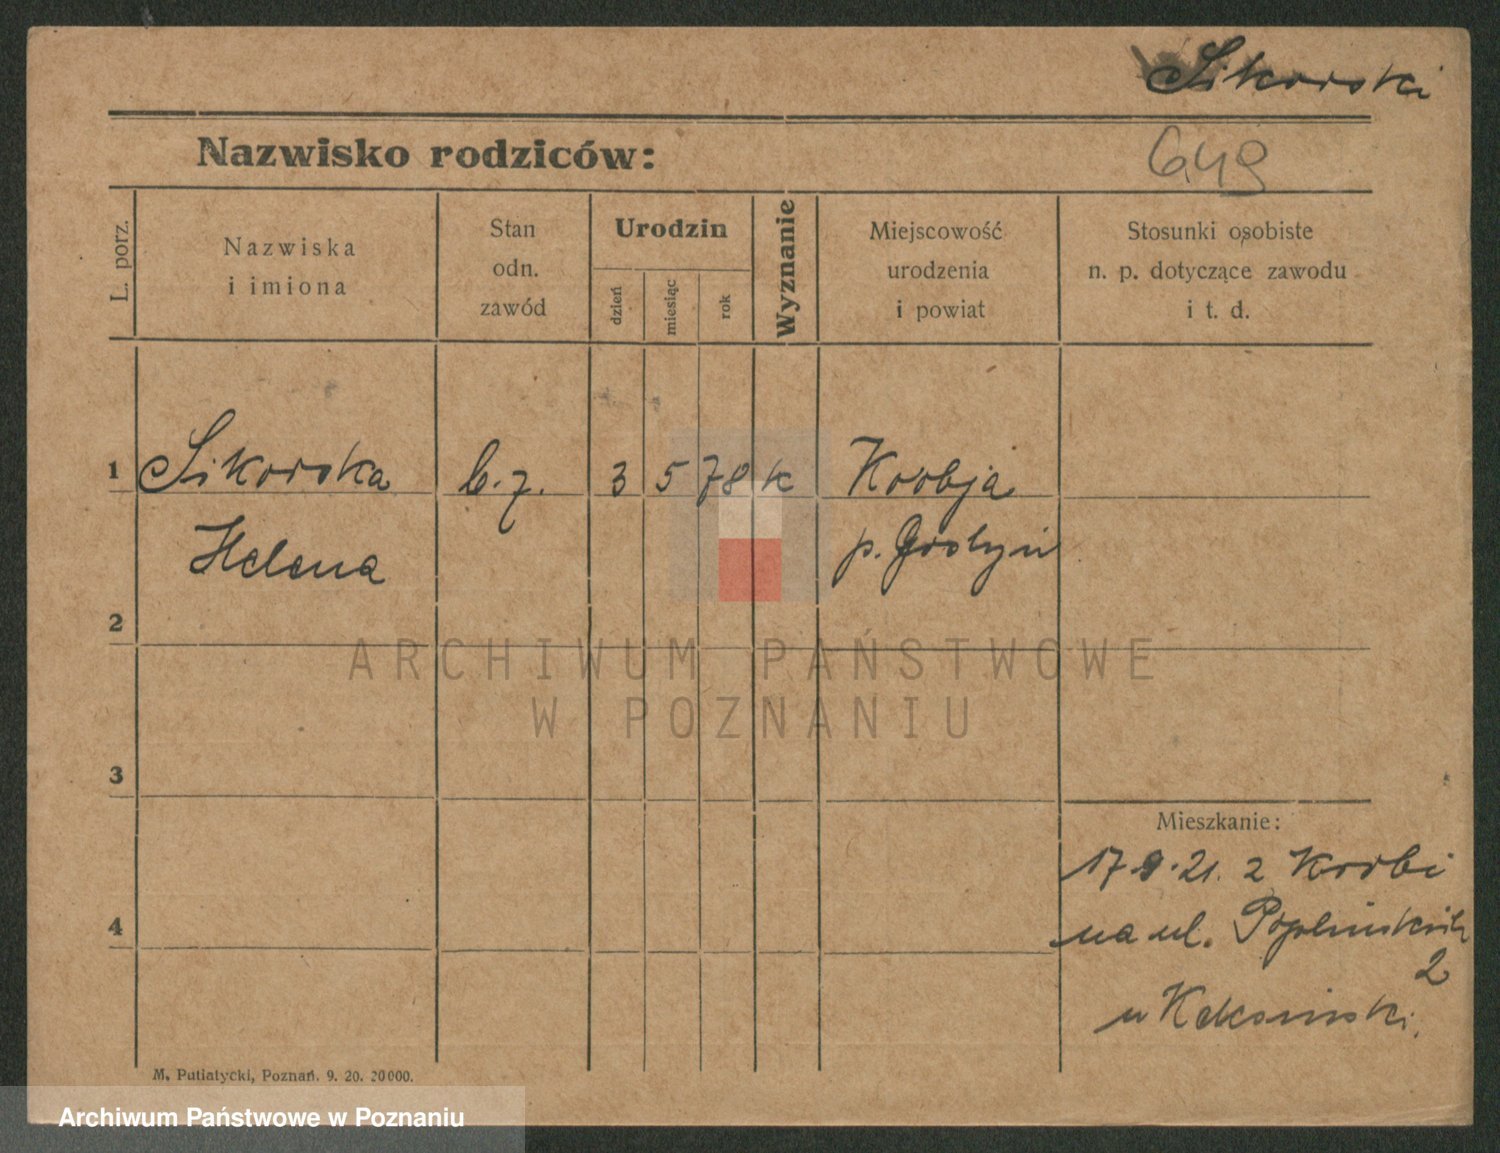 Sikorski
649
Nazwisko rodziców:
L. porz.
Nazwiska
i imiona
Stan
odn.
zawód
Urodzin
dzień
miesiąc
rok
Wyznanie
Miejscowość
urodzenia
i powiat
Stosunki osobiste
n. p. dotyczące zawodu
i t. d.
1 Sikorska b. z. 3 5 78 k
Helena
p.
2
ARCHIWUM PAŃSTWOWE
W POZNANIU
3
4
Mieszkanie:
21. z
na ul.
2
u
M. Putiatycki, Poznań. 9. 20. 20000.
Archiwum Państwowe w Poznaniu